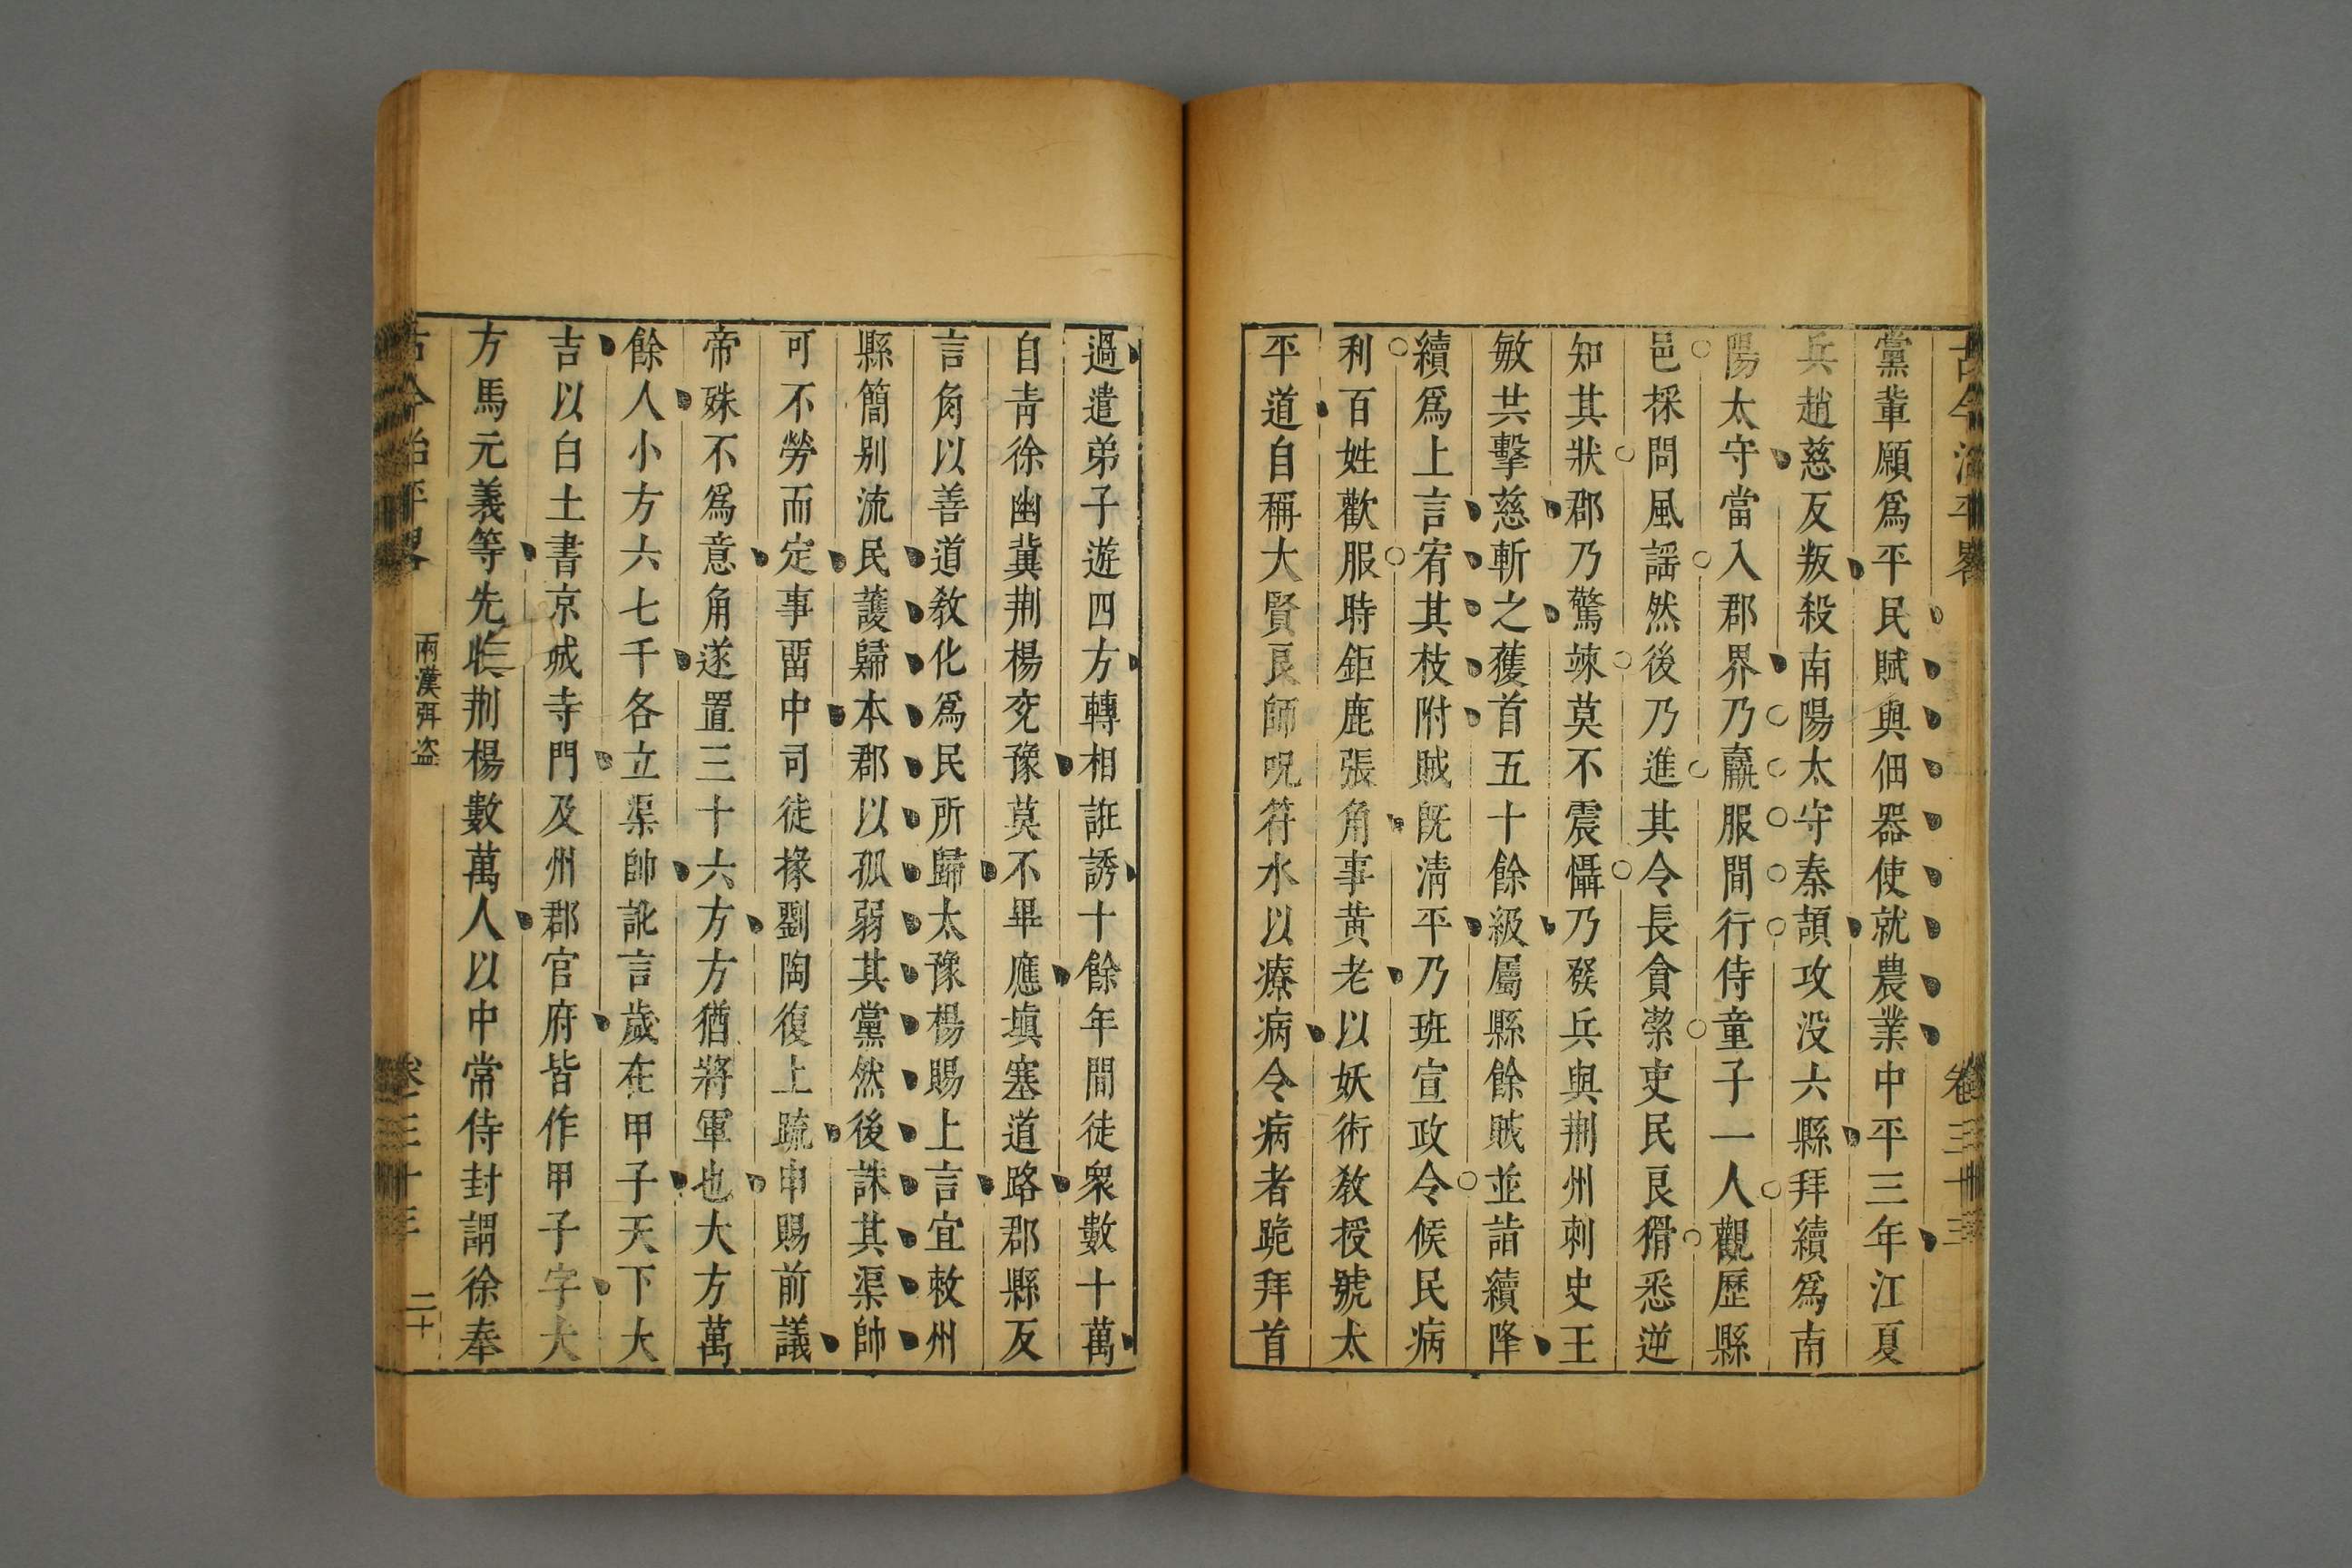 古今治平畧 卷三十三
黨輩願爲平民賦與佃器使就農業中平三年江夏
兵趙慈反叛殺南陽太守秦頡攻没六縣拜續爲南
陽太守當入郡界乃羸服間行侍童子一人觀歷縣
邑採問風謡然後乃進其令長貪潔吏民良猾悉逆
知其狀郡乃驚竦莫不震懾乃發兵與荆州刺史王
敏共擊慈斬之獲首五十餘級屬縣餘賊並詣續降
續爲上言宥其枝附賊旣清平乃班宣政令候民病
利百姓歡服時鉅鹿張角事黄老以妖術教授號太
平道自稱大賢良師呪符水以療病令病者跪拜首
過遣弟子遊四方轉相誑誘十餘年間徒衆數十萬
自青徐幽冀荆楊兖豫莫不畢應塡塞道路郡縣反
言角以善道教化爲民所歸太豫楊賜上言宜敕州
縣簡别流民護歸本郡以孤弱其黨然後誅其渠帥
可不勞而定事畱中司徒掾劉陶復上疏申賜前議
帝殊不爲意角遂置三十六方方猶將軍也大方萬
餘人小方六七千各立渠帥訛言歲在甲子天下大
吉以白土書京城寺門及州郡官府皆作甲子字大
方馬元義等先收荆楊數萬人以中常侍封諝徐奉
古今治平畧 兩漢弭盜 卷三十三 二十